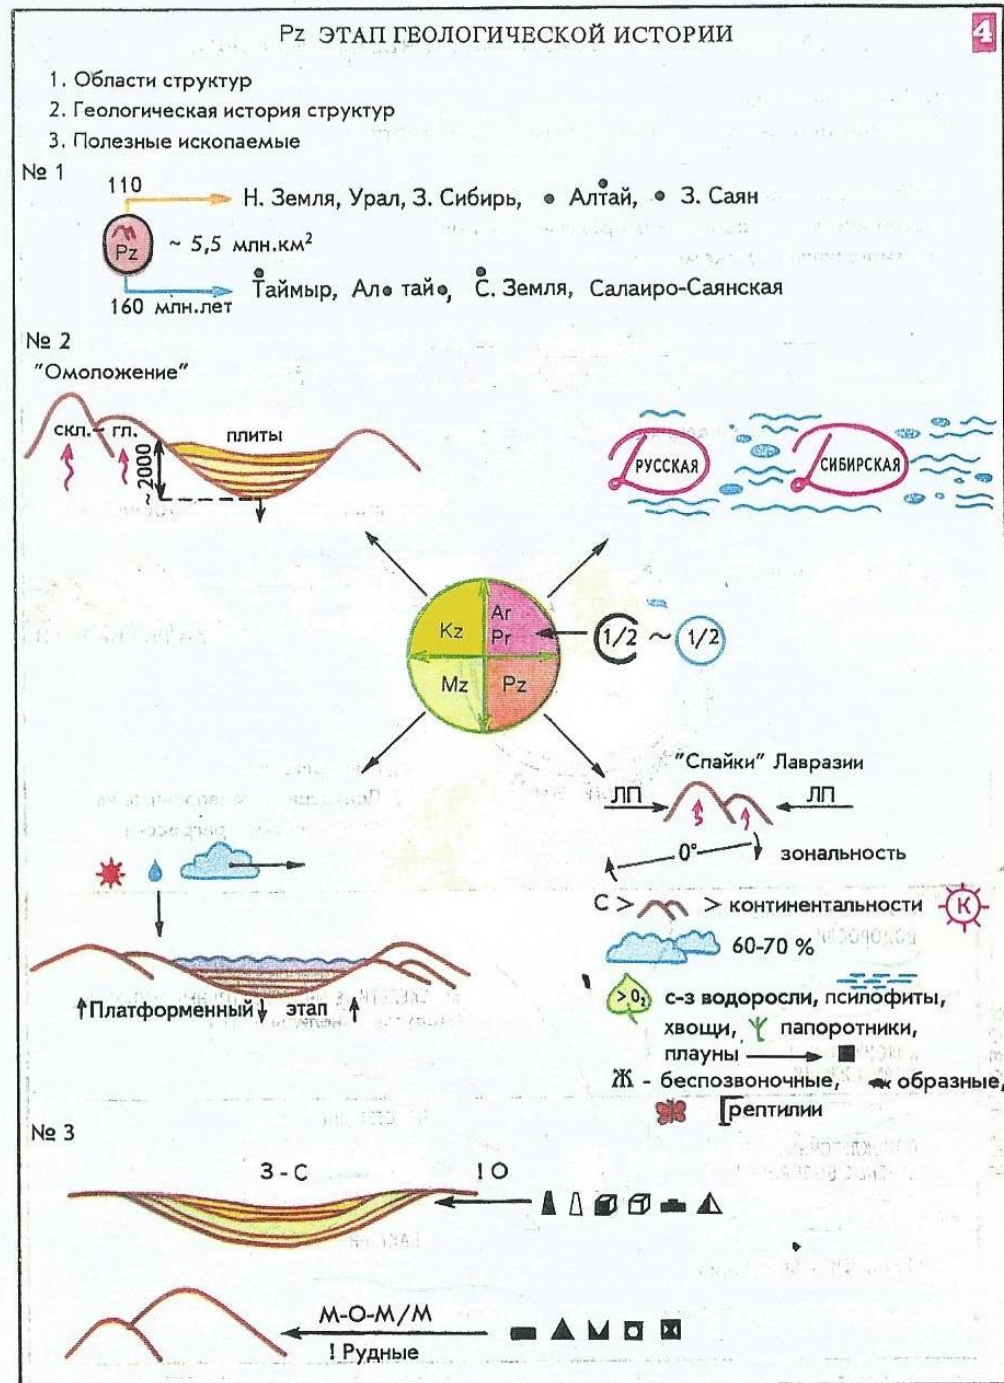 Pz ЭТАП ГЕОЛОГИЧЕСКОЙ ИСТОРИИ
4
1. Области структур
2. Геологическая история структур
3. Полезные ископаемые
№ 1
110
Н. Земля, Урал, З. Сибирь, • Алтай, • З. Саян
Pz
~ 5,5 млн.км²
160 млн.лет
Таймыр, Ал• тай•, С. Земля, Салаиро-Саянская
№ 2
"Омоложение"
скл.- гл.
плиты
~2000
РУССКАЯ
СИБИРСКАЯ
Kz
Ar
Pr
Mz
Pz
1/2 ~ 1/2
"Спайки" Лавразии
ЛП
ЛП
0°
зональность
С > > континентальности
К
60-70 %
>O₂
с-з водоросли, псилофиты,
хвощи, папоротники,
плауны
Ж - беспозвоночные, образные,
рептилии
Платформенный этап
№ 3
З - С
10
М-О-М/М
! Рудные